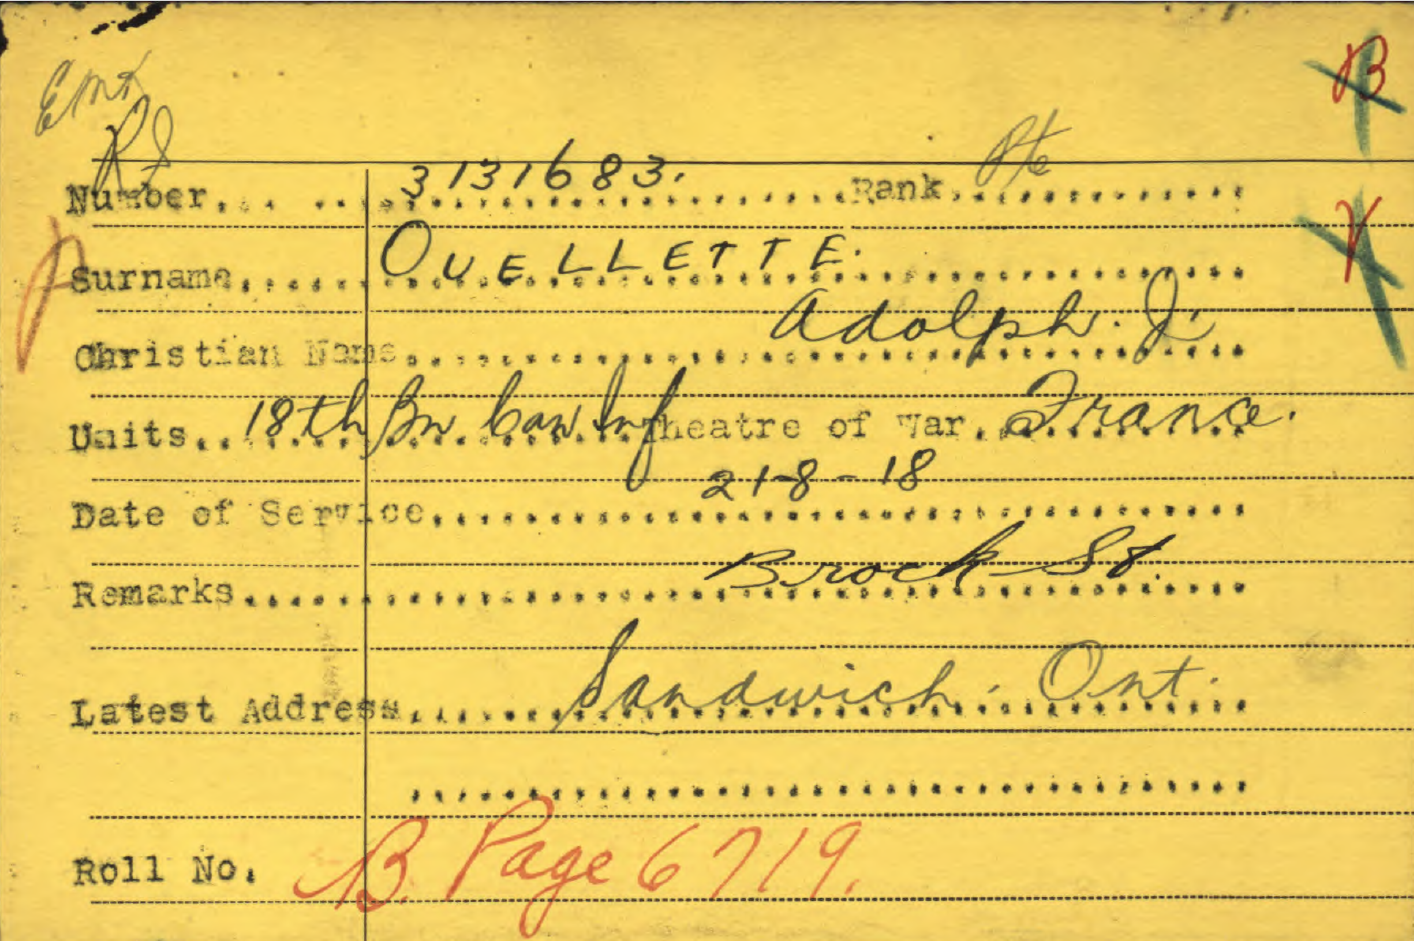 EMK
RJ
B
Number 3131683. Rank Pte
V
Surname OUELLETTE.
Christian Name Adolph. J.
Units 18th Bn Can Inf Theatre of War France.
Date of Service 21-8-18
Remarks Brock St.
Latest Address Sandwich. Ont.
Roll No. B. Page 6719.